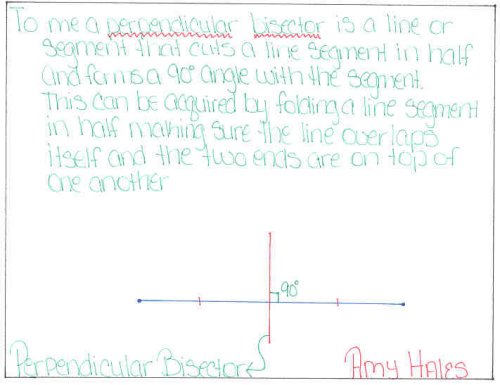 To me a perpendicular bisector is a line or
segment that cuts a line segment in half
and forms a 90° angle with the segment.
This can be acquired by folding a line segment
in half making sure the line overlaps
itself and the two ends are on top of
one another
90°
Perpendicular Bisector
Amy Hales